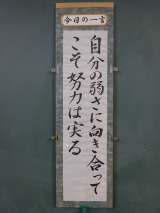 今日の一言
自分の弱さに向き合って
こそ努力は実る